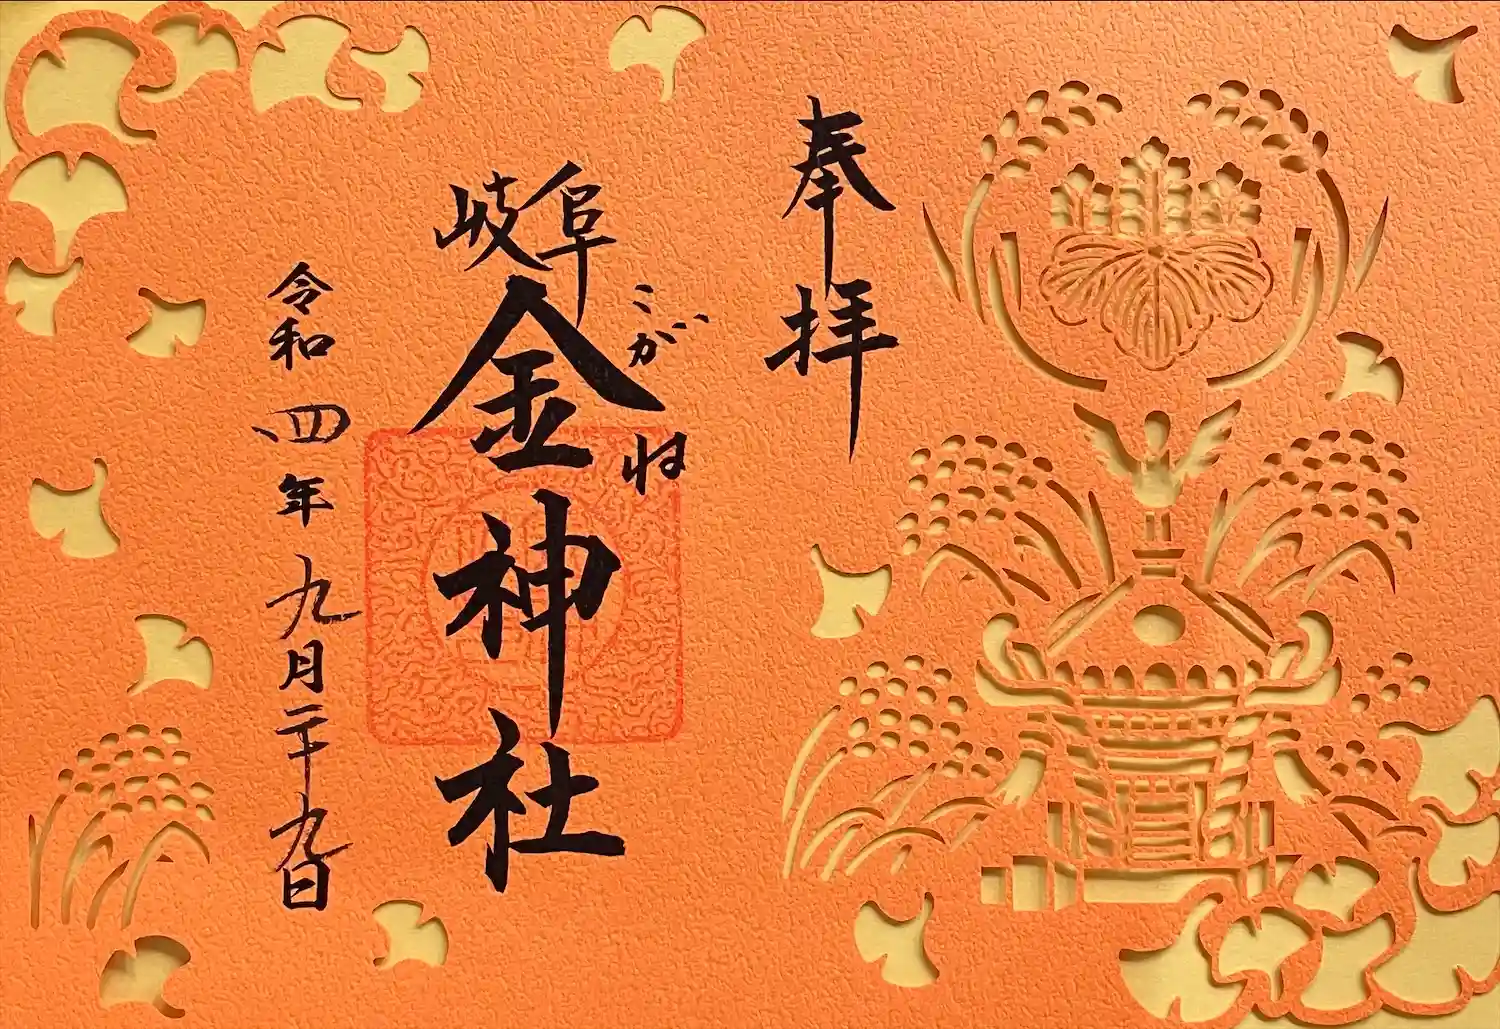 奉拝
こがね
岐阜
金神社
令和四年九月二十九日